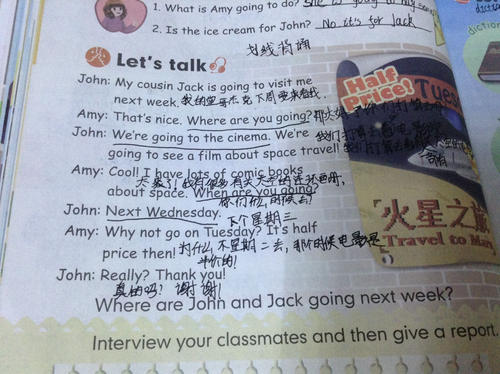 1. What is Amy going to do? She is going to
2. Is the ice cream for John? No it's for Jack
划线背诵
Let's talk
John: My cousin Jack is going to visit me
next week. 我的堂哥杰克下周要来看我.
Amy: That's nice. Where are you going?
John: We're going to the cinema. We're 我们打算去看电影
going to see a film about space travel!
Amy: Cool! I have lots of comic books
太酷了!我有很多有关太空的连环画册,
about space. When are you going?
你们什么时候去?
John: Next Wednesday.
下个星期三
Amy: Why not go on Tuesday? It's half
price then! 为什么不星期二去,那个时候电影票
半价的!
John: Really? Thank you!
真的吗? 谢谢!
Where are John and Jack going next week?
Interview your classmates and then give a report.
Half
Price!
Tues
火星之旅
Travel to Mar
diction